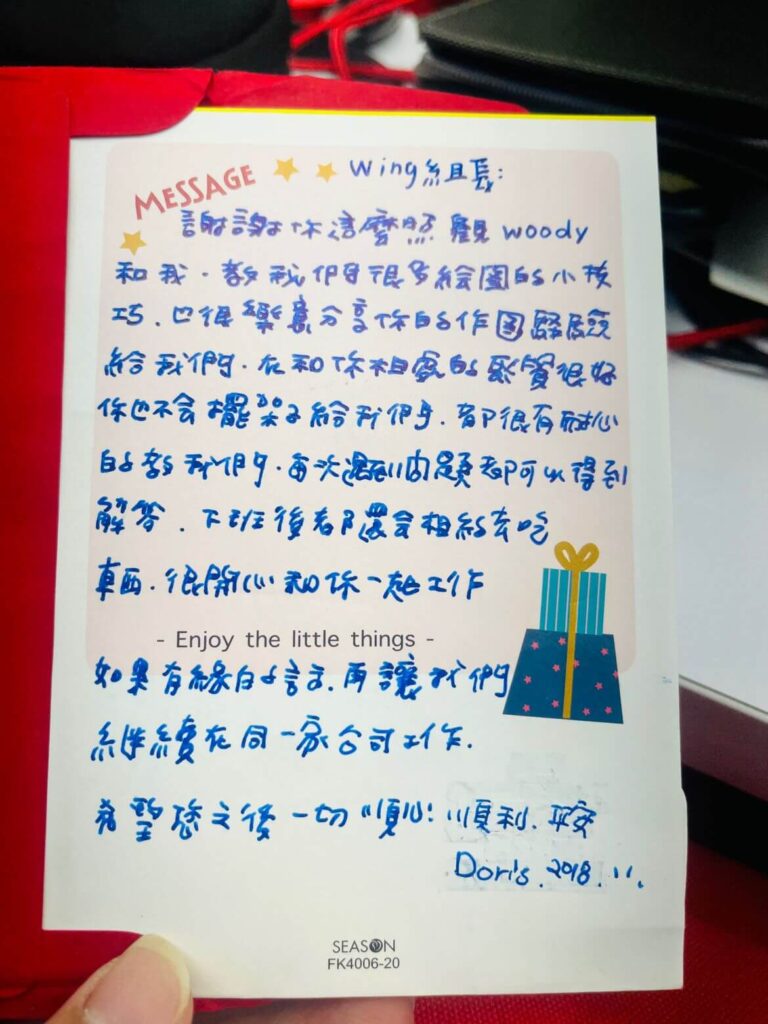 MESSAGE
Wing組長:
謝謝你這麼照顧woody
和我.教我們很多繪圖的小技
巧.也很樂意分享你的作圖經驗
給我們.在和你相處的感覺很好
你也不会擺架子給我們.都很有耐心
的教我們.每次遇到問題都可以得到
解答.下班後都還会相約去吃
東西.很開心和你一起工作
- Enjoy the little things -
如果有緣的話.再讓我們
繼續在同一家公司工作.
希望您之後一切順心!順利.平安
Doris.2018.11.
SEASON
FK4006-20